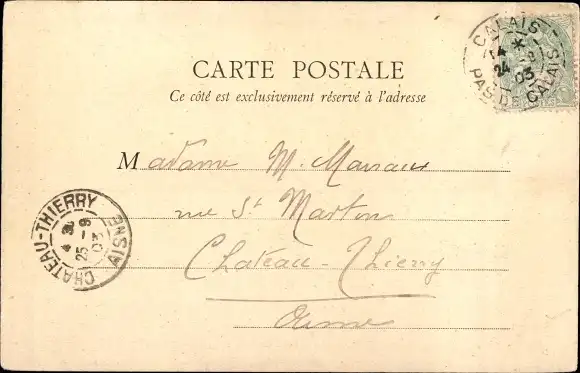 CARTE POSTALE
Ce côté est exclusivement réservé à l'adresse
CALAIS
24 9 03
PAS DE CALAIS
Madame M.
rue St Martin
Château-Thierry
Aisne
CHATEAU-THIERRY
25 - 9
03
AISNE